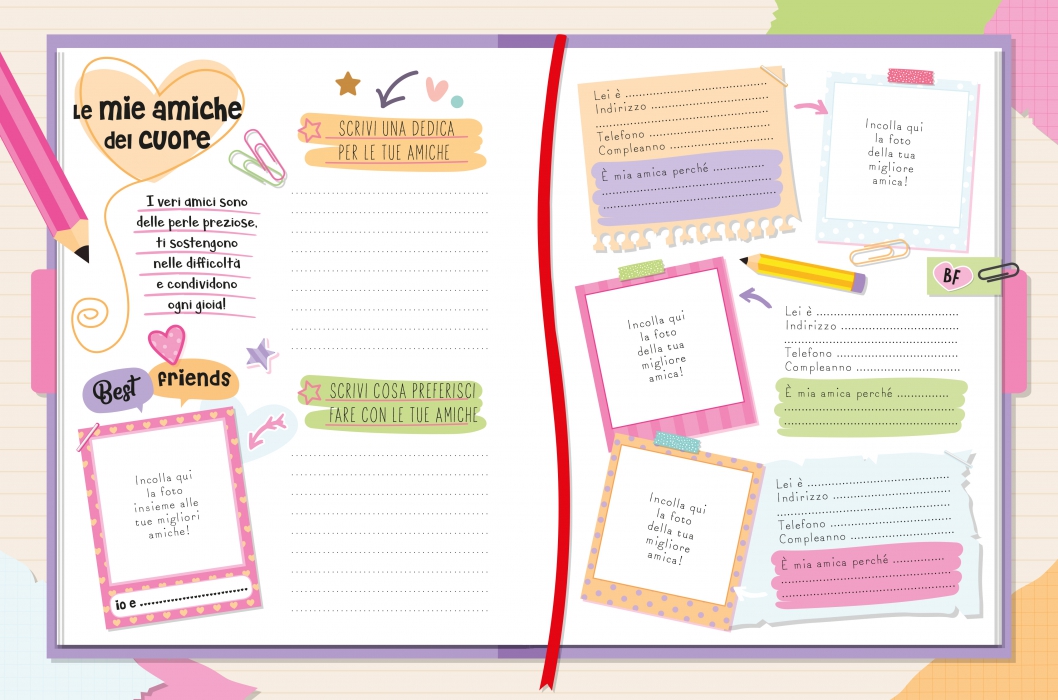 Le mie amiche
del cuore
I veri amici sono
delle perle preziose,
ti sostengono
nelle difficoltà
e condividono
ogni gioia!
Best friends
Incolla qui
la foto
insieme alle
tue migliori
amiche!
io e ........................
SCRIVI UNA DEDICA
PER LE TUE AMICHE
SCRIVI COSA PREFERISCI
FARE CON LE TUE AMICHE
Lei è ........................
Indirizzo ........................
Telefono ........................
Compleanno ........................
È mia amica perché ........................
Incolla qui
la foto
della tua
migliore
amica!
BF
Incolla qui
la foto
della tua
migliore
amica!
Lei è ........................
Indirizzo ........................
Telefono ........................
Compleanno ........................
È mia amica perché ........................
Incolla qui
la foto
della tua
migliore
amica!
Lei è ........................
Indirizzo ........................
Telefono ........................
Compleanno ........................
È mia amica perché ........................